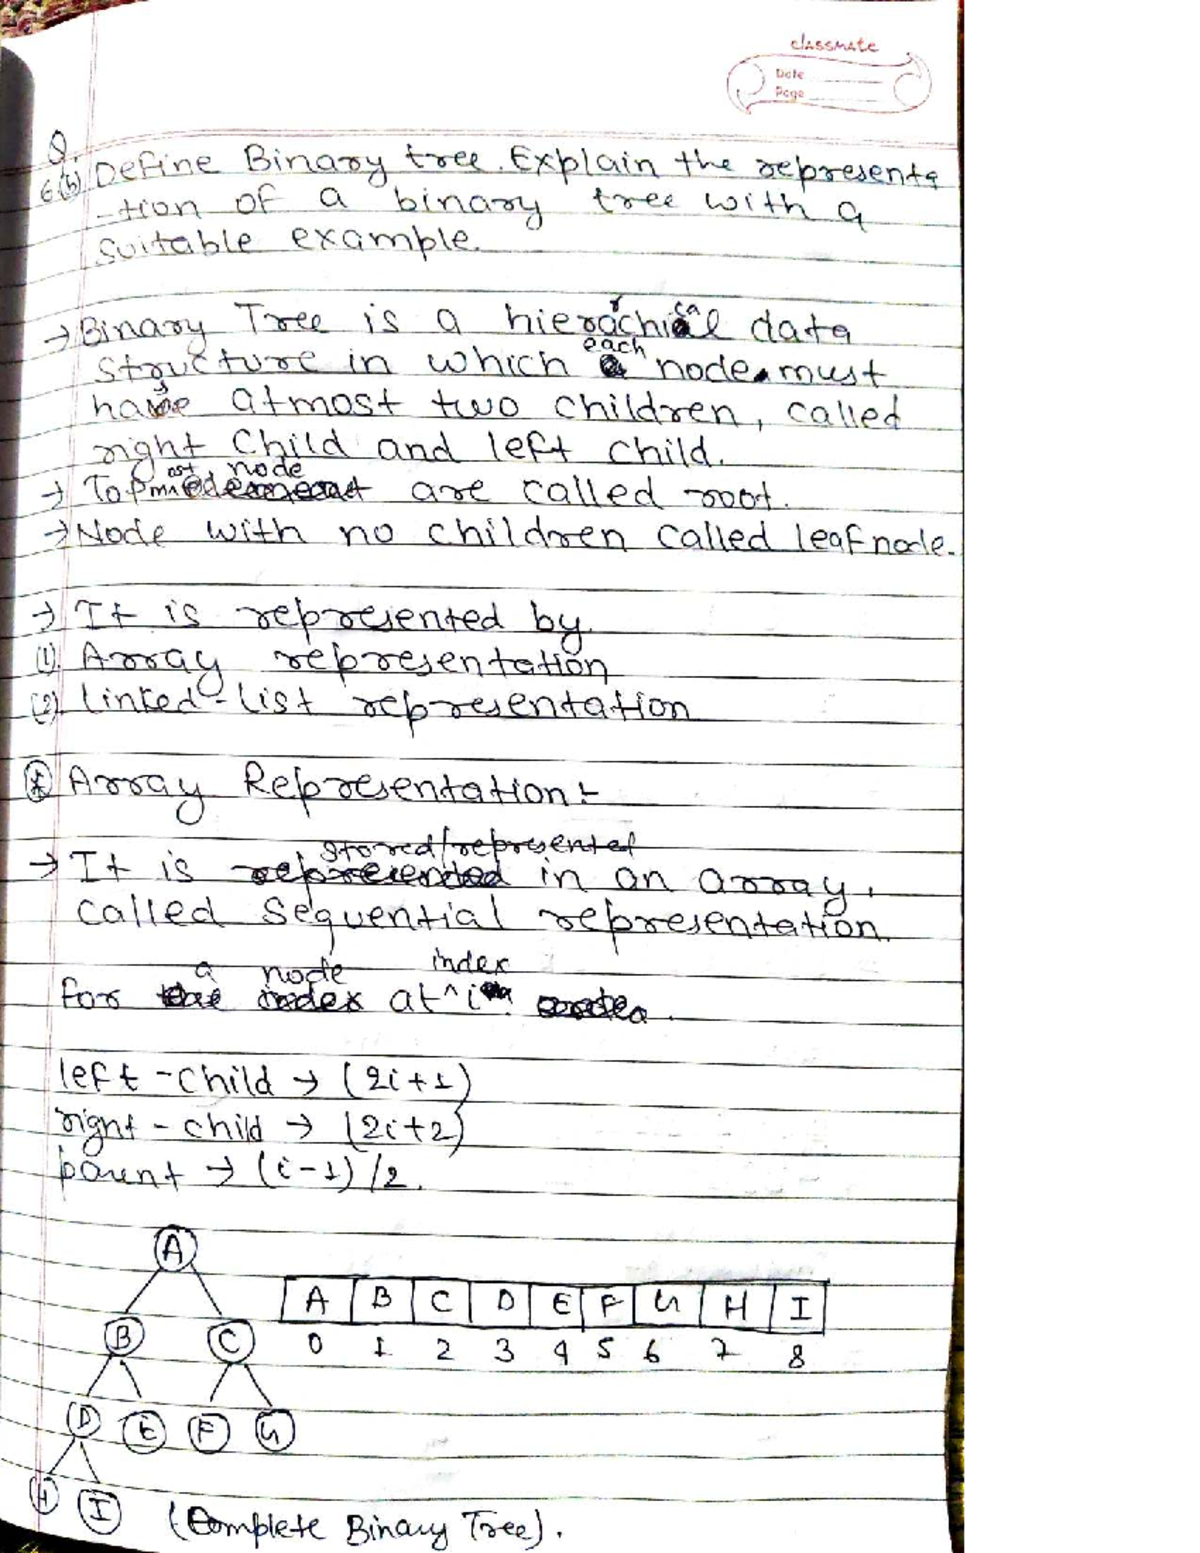 classmate
Date
Page
Q.
6(b) Define Binary tree. Explain the representa
-tion of a binary tree with a
suitable example.
→ Binary Tree is a hierarchical data
structure in which each node must
have atmost two children, called
right Child and left child.
→ Topmost node are called root.
→ Node with no children called leaf node.
→ It is represented by.
(1). Array representation
(2). Linked-list representation
* Array Representation:-
→ It is stored/represented in an array,
called sequential representation.
for a node at index i.
left-child → (2i+1)
right-child → (2i+2)
parent → (i-1)/2.
A
A B C D E F G H I
B C
0 1 2 3 4 5 6 7 8
D E F G
H I
(Complete Binary Tree).